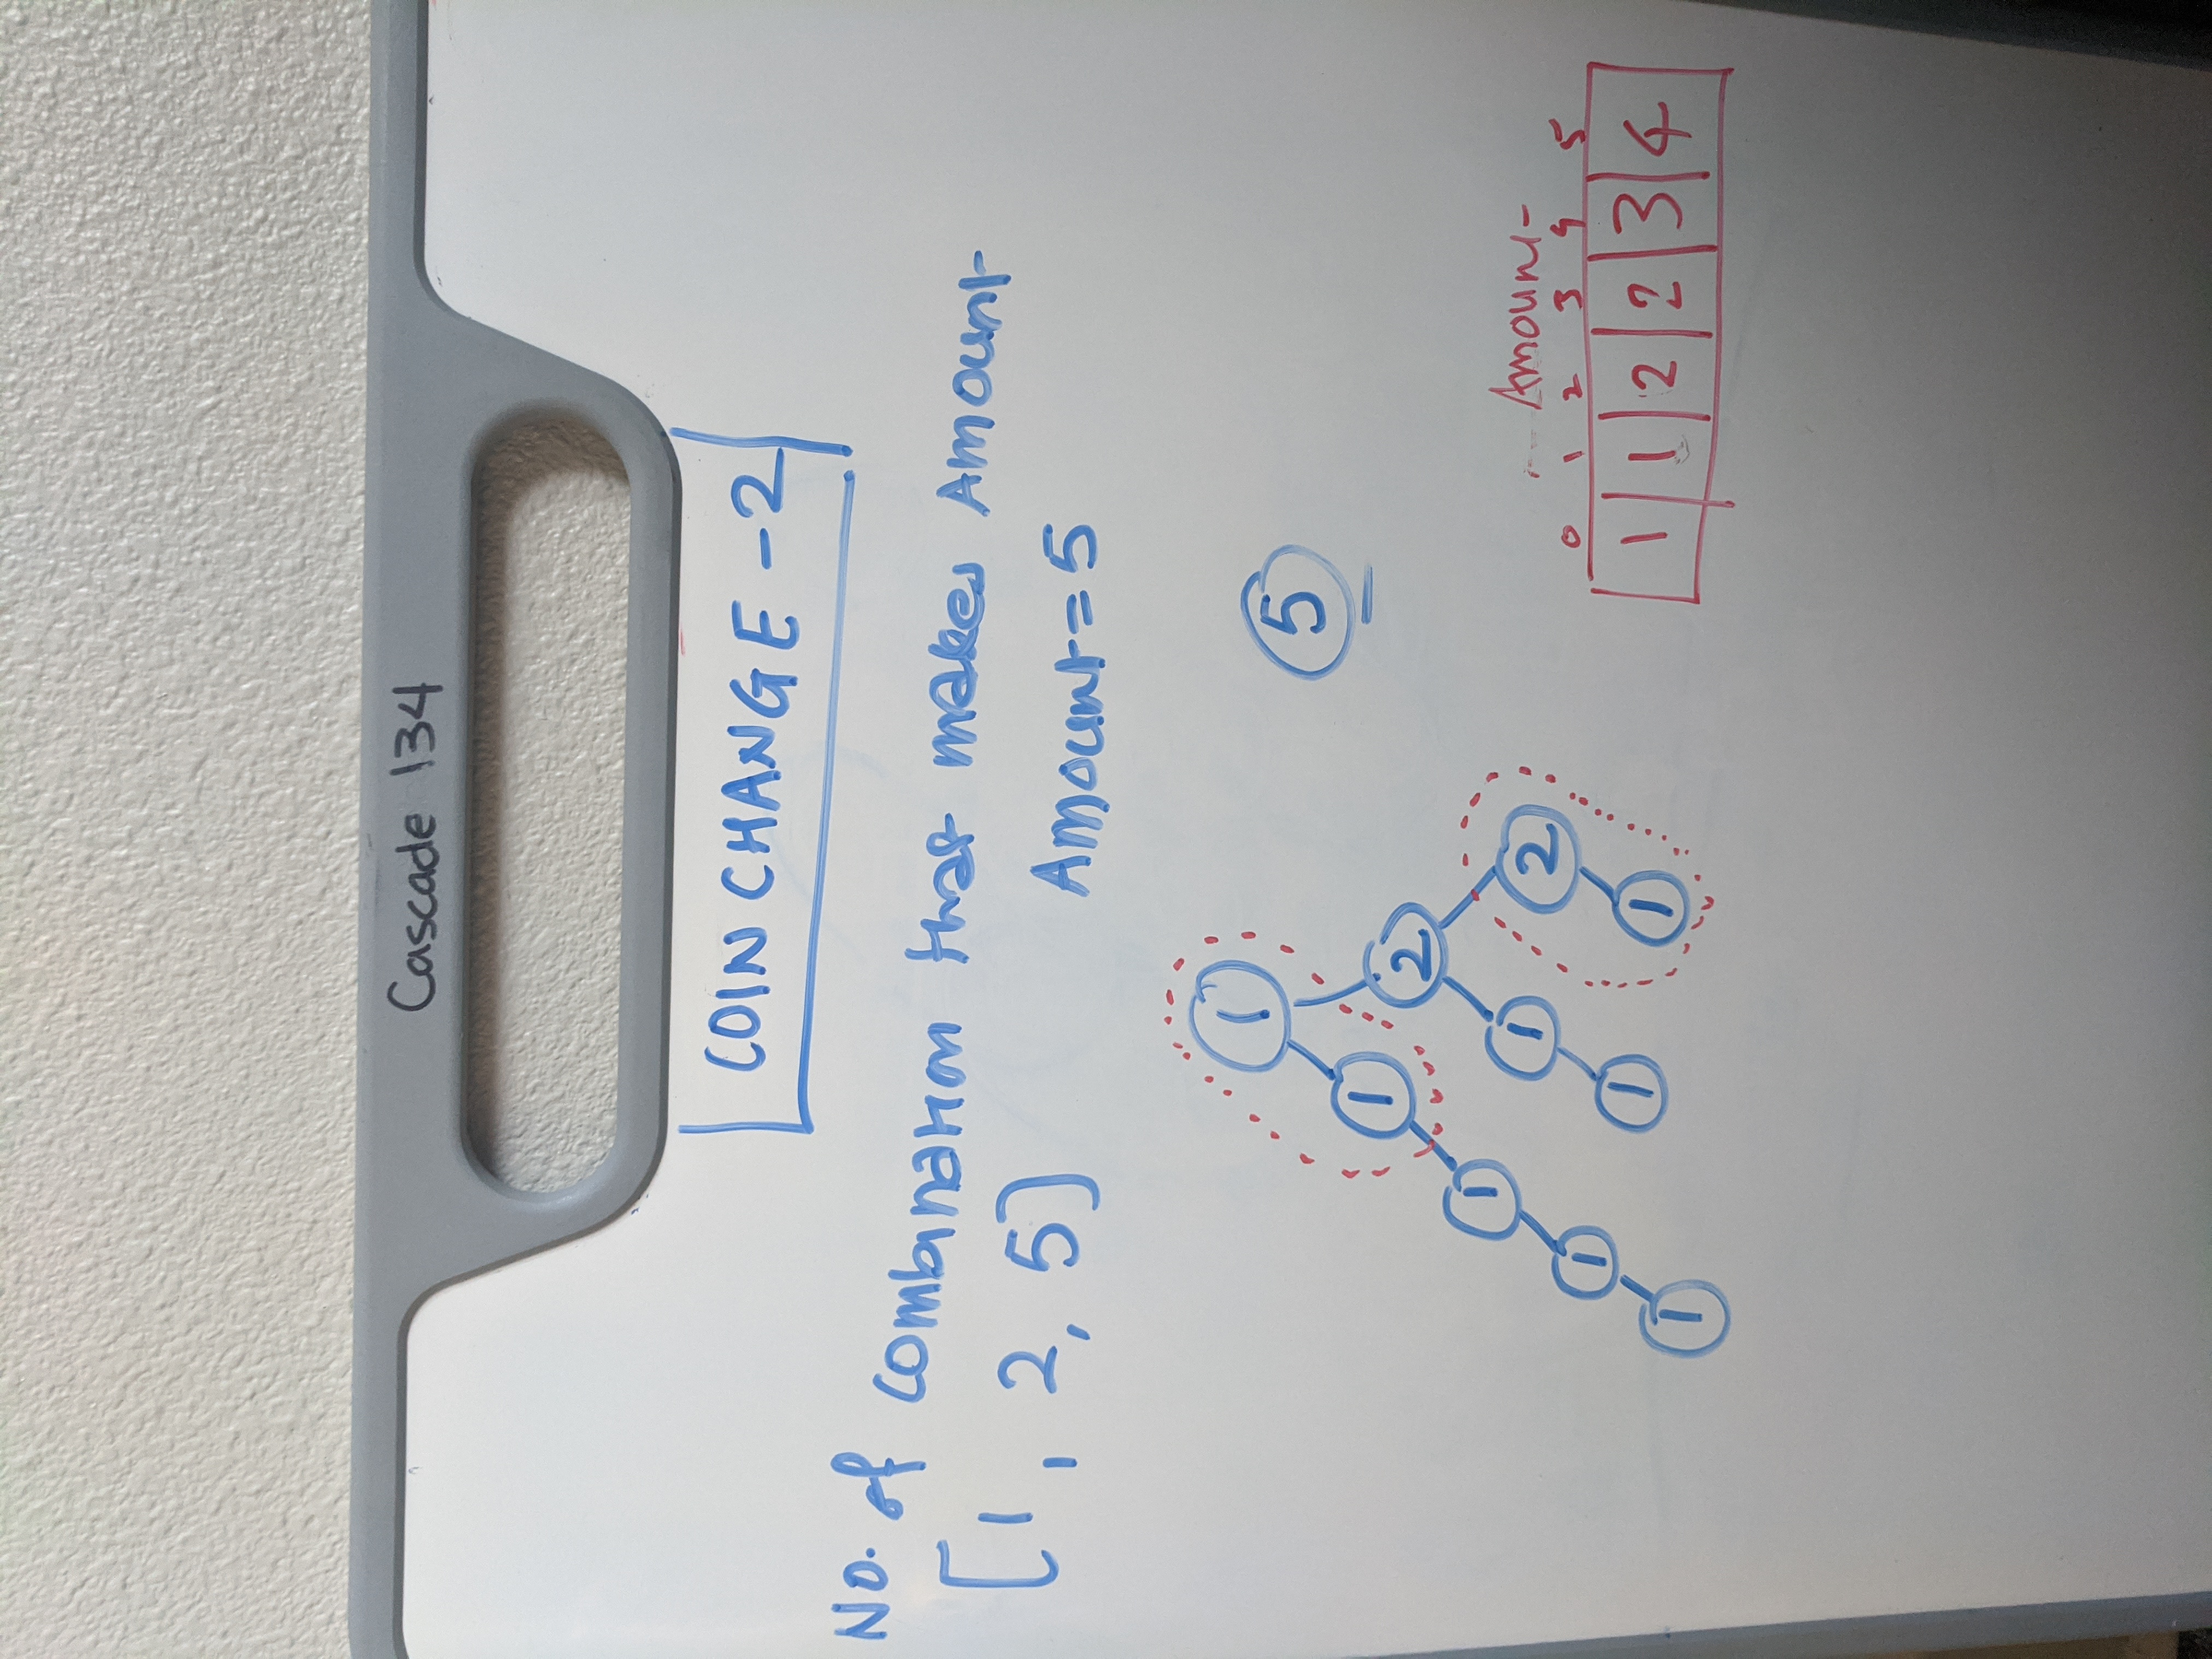 Cascade 134
COIN CHANGE - 2
No. of combination that makes Amount
[1, 2, 5] Amount = 5
1
5
1 2
1 1 2
1 1 1
1
Amount
0 1 2 3 4 5
1 1 2 2 3 4